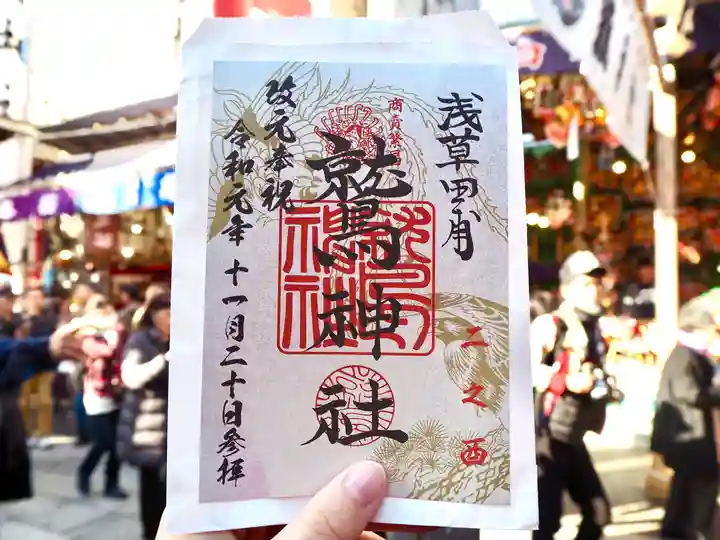 浅草田甫
商売繁
鷲神社
二之酉
改元奉祝
令和元年 十一月二十日参拝